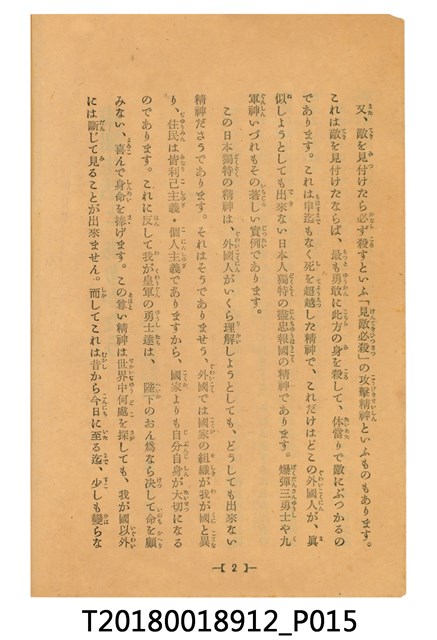 又、敵を見付けたら必ず殺すといふ「見敵必殺」の攻擊精神といふものもあります。
これは敵を見付けたならば、最も勇敢に此方の身を殺して、体當りで敵にぶつかるの
であります。これは申迄もなく死を超越した精神で、これだけはどこの外國人が、眞
似しようとしても出來ない日本人獨特の盡忠報國の精神であります。爆彈三勇士や九
軍神いづれもその著しい實例であります。
この日本獨特の精神は、外國人がいくら理解しようとしても、どうしても出來ない
精神ださうであります。それはそうでありませう、外國では國家の組織が我が國と異
り、住民は皆利己主義・個人主義でありますから、國家よりも自分自身が大切になる
のであります。これに反して我が皇軍の勇士達は、陛下のおん爲なら決して命を顧
みない、喜んで身命を捧げます。この尊い精神は世界中何處を探しても、我が國以外
には斷じて見ることが出來ません。而してこれは昔から今日に至る迄、少しも變らな
—【 2 】—
T20180018912_P015